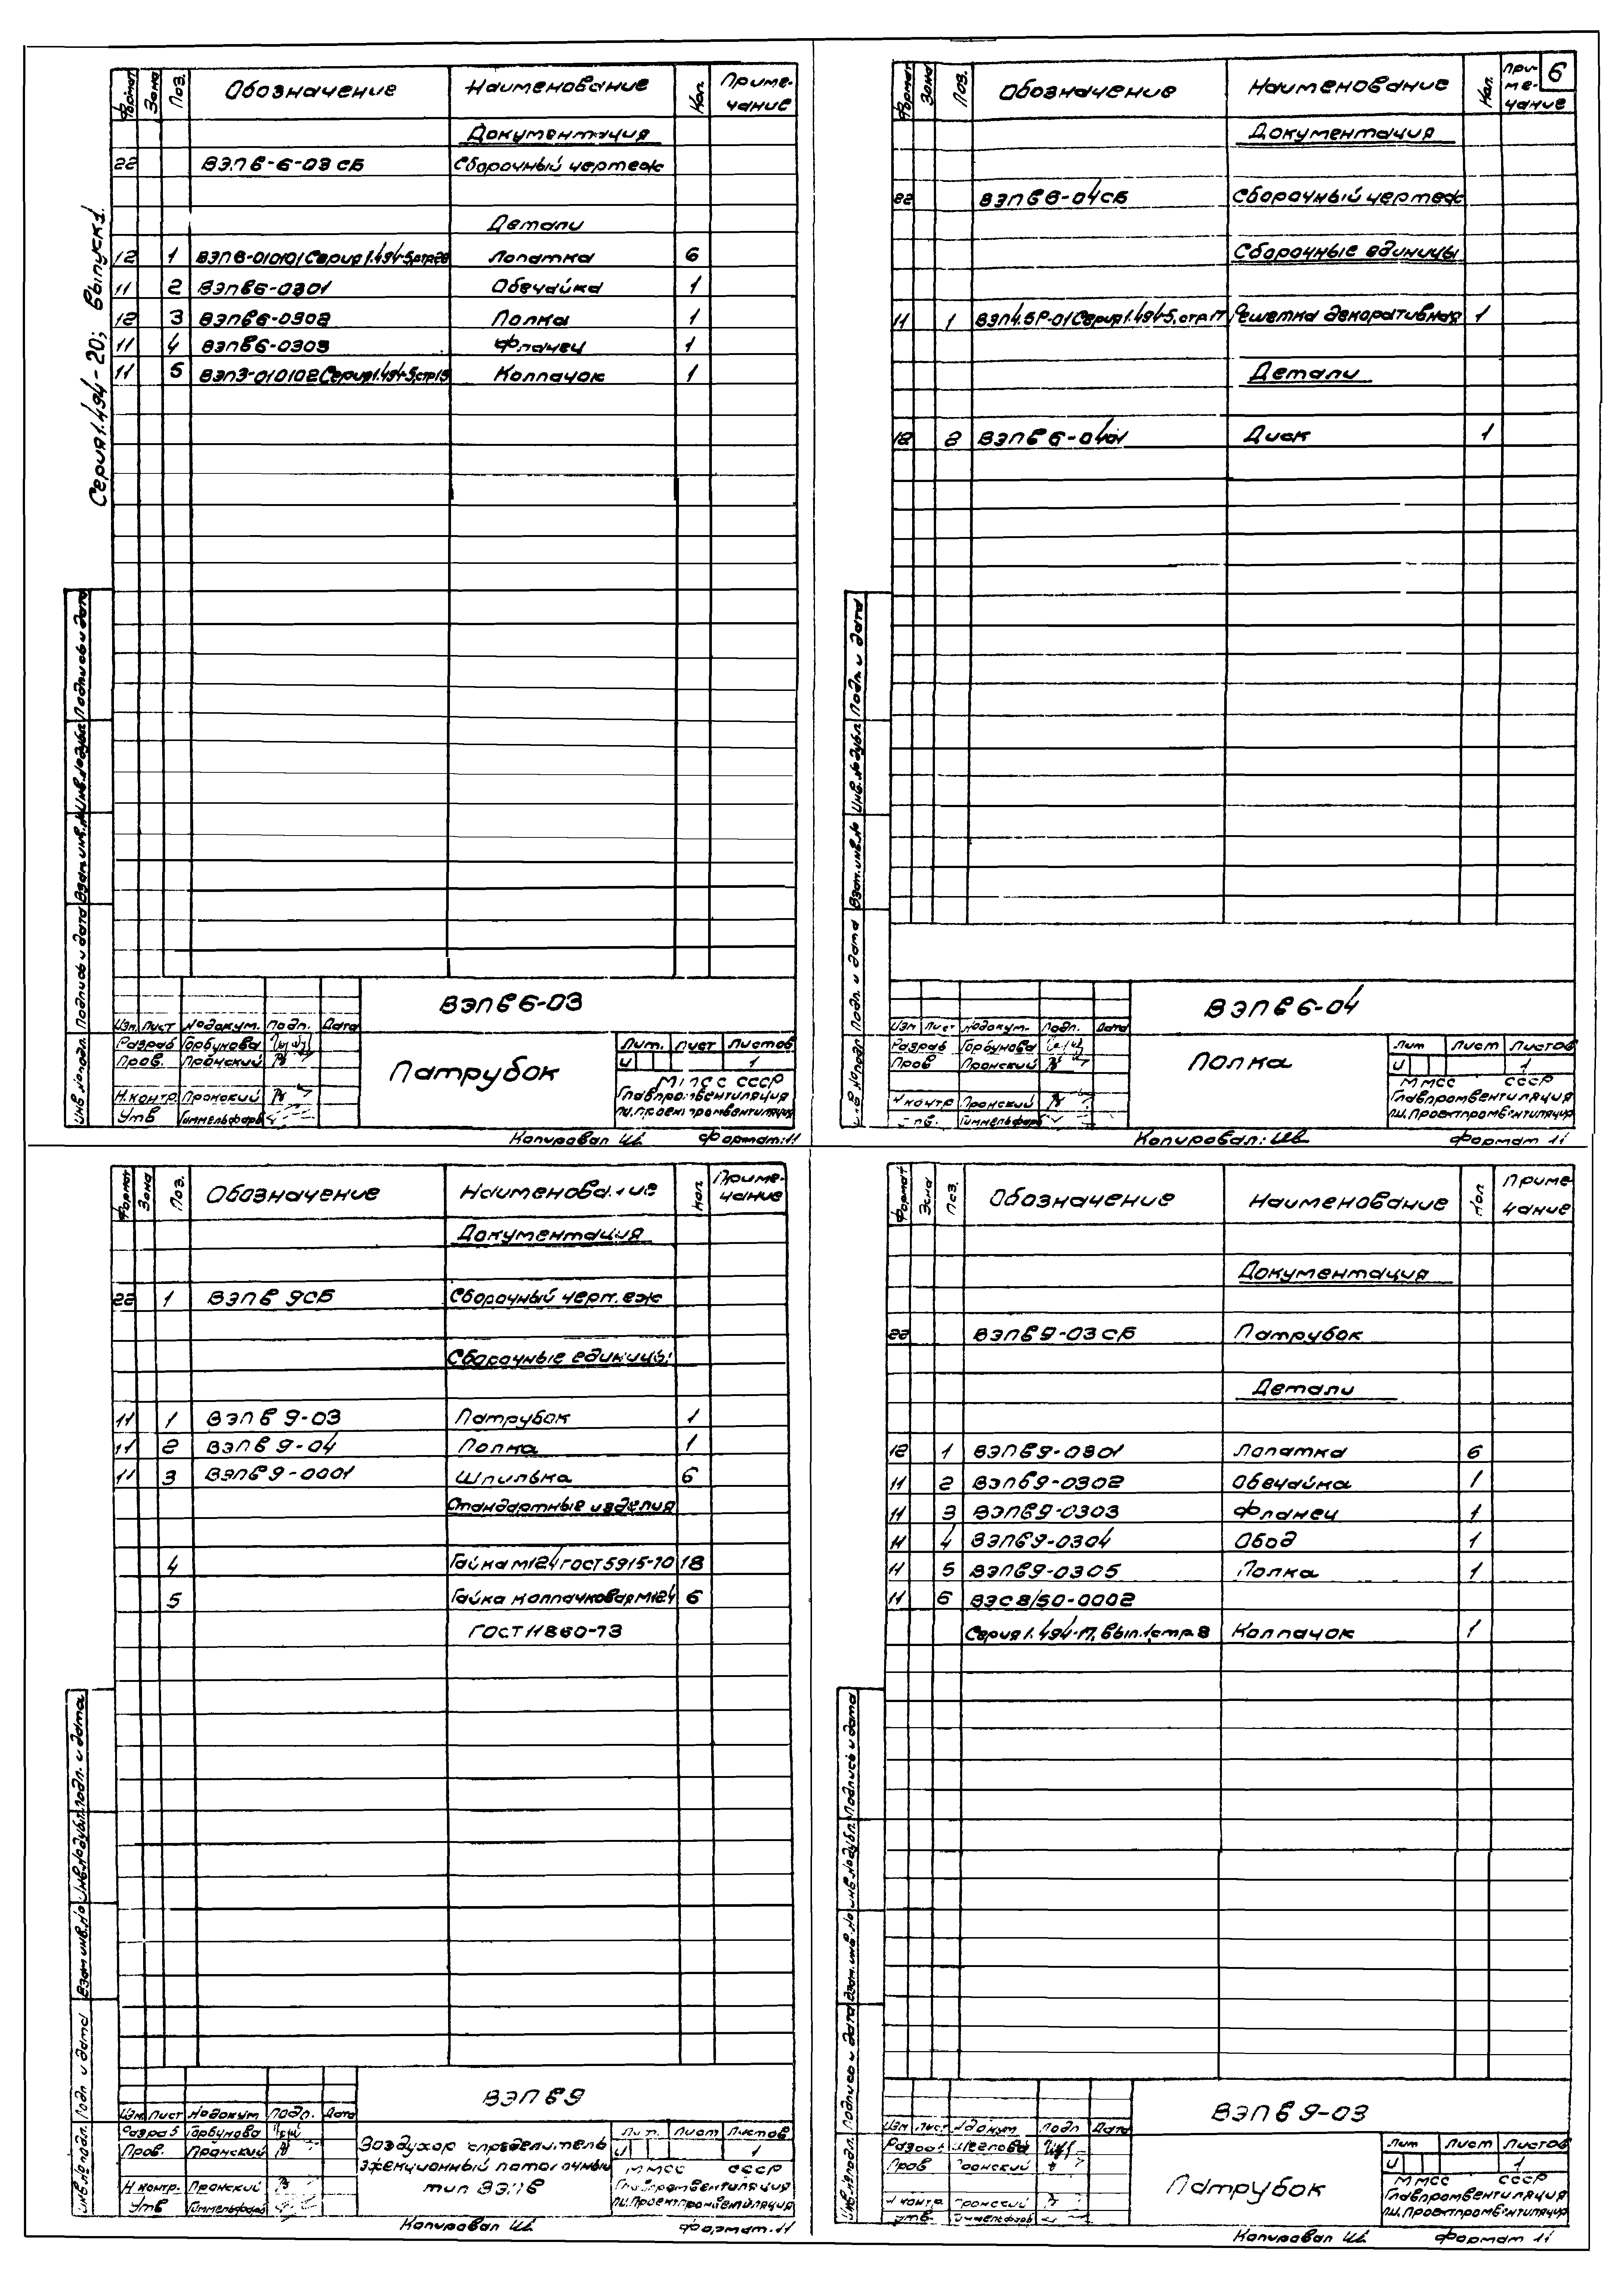 Серия 1.494-20; выпуск 1.
Формат Зона Поз. Обозначение Наименование Кол. Приме-
чание
Документация
22 ВЭПв-6-03 СБ Сборочный чертеж
Детали
12 1 ВЭПв-010101 Серия 1.494-5, стр.28 Лопатка 6
11 2 ВЭПв6-0301 Обечайка 1
12 3 ВЭПв6-0302 Полка 1
11 4 ВЭПв6-0303 Фланец 1
11 5 ВЭП3-010102 Серия 1.494-5, стр.15 Колпачок 1
Инв.№подл. Подпись и дата Взам.инв.№ Инв.№дубл. Подпись и дата
ВЭПв6-03
Изм. Лист №докум. Подп. Дата
Разраб Горбунова
Пров. Пронский
Н.контр. Пронский
Утв Гиммельфарб
Патрубок
Лит. Лист Листов
И 1
ММСС СССР
Главпромвентиляция
п.и. Проектпромвентиляция
Копировал Формат: 11
6
Формат Зона Поз. Обозначение Наименование Кол. При-
ме-
чание
Документация
22 ВЭПв6-04СБ Сборочный чертеж
Сборочные единицы
11 1 ВЭП4.5Р-01 Серия 1.494-5, стр.17 Решетка декоративная 1
Детали
12 2 ВЭПв6-0401 Диск 1
Инв.№подл Подп. и дата Взам.инв.№ Инв.№дубл. Подп. и дата
ВЭПв6-04
Изм Лист №докум. Подп. Дата
Разраб Горбунова
Пров Пронский
Н контр Пронский
Утв. Гиммельфарб
Полка
Лит Лист Листов
И 1
ММСС СССР
Главпромвентиляция
п.и. Проектпромвентиляция
Копировал: Формат 11
Формат Зона Поз. Обозначение Наименование Кол. Приме-
чание
Документация
22 1 ВЭПв 9СБ Сборочный чертеж
Сборочные единицы
11 1 ВЭПв 9-03 Патрубок 1
11 2 ВЭПв 9-04 Полка 1
11 3 ВЭПв 9-0001 Шпилька 6
Стандартные изделия
4 Гайка М12.4 ГОСТ 5915-70 18
5 Гайка колпачковая М12.4 6
ГОСТ 11860-73
Инв.№подл. Подп и дата Взам инв.№ Инв.№дубл. Подп. и дата
ВЭПв9
Изм. Лист №докум Подп. Дата
Разраб Горбунова
Пров. Пронский
Н контр. Пронский
Утв Гиммельфарб
Воздухораспределитель
эжекционный потолочный
тип ВЭПв
Лит. Лист Листов
И 1
ММСС СССР
Главпромвентиляция
п.и. Проектпромвентиляция
Копировал Формат. 11
Формат Зона Поз. Обозначение Наименование Кол Приме-
чание
Документация
22 ВЭПв9-03СБ Патрубок
Детали
12 1 ВЭПв9-0301 Лопатка 6
11 2 ВЭПв9-0302 Обечайка 1
11 3 ВЭПв9-0303 Фланец 1
11 4 ВЭПв9-0304 Обод 1
11 5 ВЭПв9-0305 Полка 1
11 6 ВЭС8/50-0002
Серия 1.494-17, вып.1, стр.8 Колпачок 1
Инв.№подл. Подпись и дата Взам.инв.№ Инв.№дубл. Подпись и дата
ВЭПв9-03
Изм Лист №докум Подп Дата
Разраб
Пров Пронский
Н контр Пронский
Утв. Гиммельфарб
Патрубок
Лит Лист Листов
И 1
ММСС СССР
Главпромвентиляция
п.и. Проектпромвентиляция
Копировал Формат 11